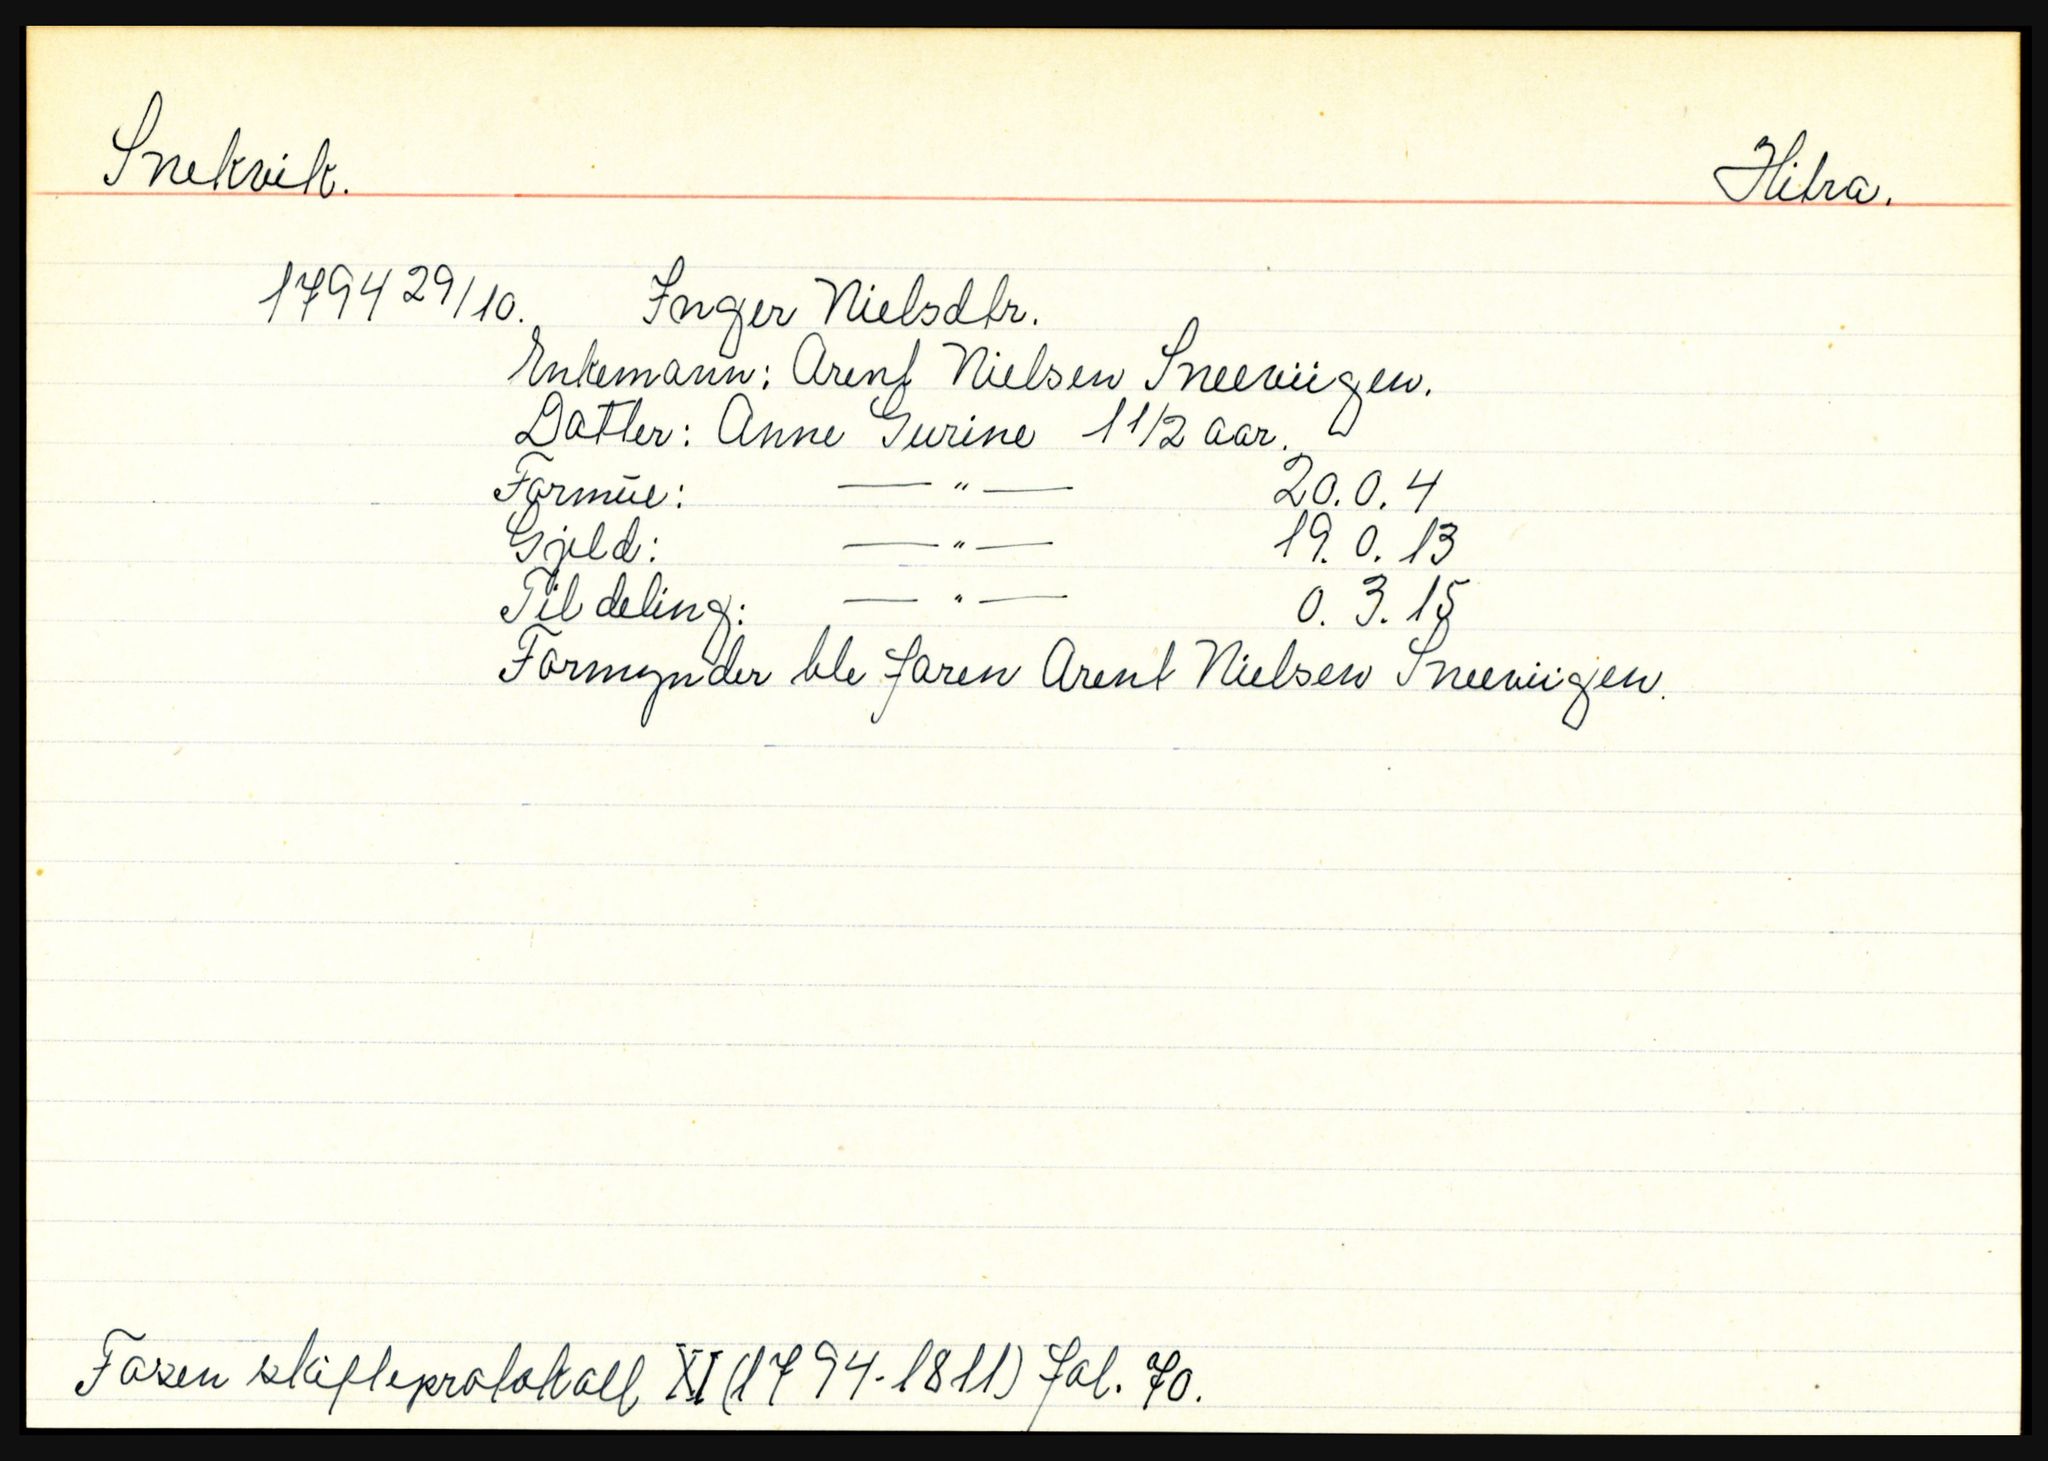 Snekvik. Hitra.
1794 29/10. Inger Nielsdtr.
Enkemann: Arent Nielsen Sneeviigen.
Datter: Anne Gurine 1 1/2 aar.
Formue: — " — 20. 0. 4
Gjeld: — " — 19. 0. 13
Til deling: — " — 0. 3. 15
Formynder ble faren Arent Nielsen Sneeviigen.
Fosen skifteprotokoll XI (1794-1811) fol. 70.